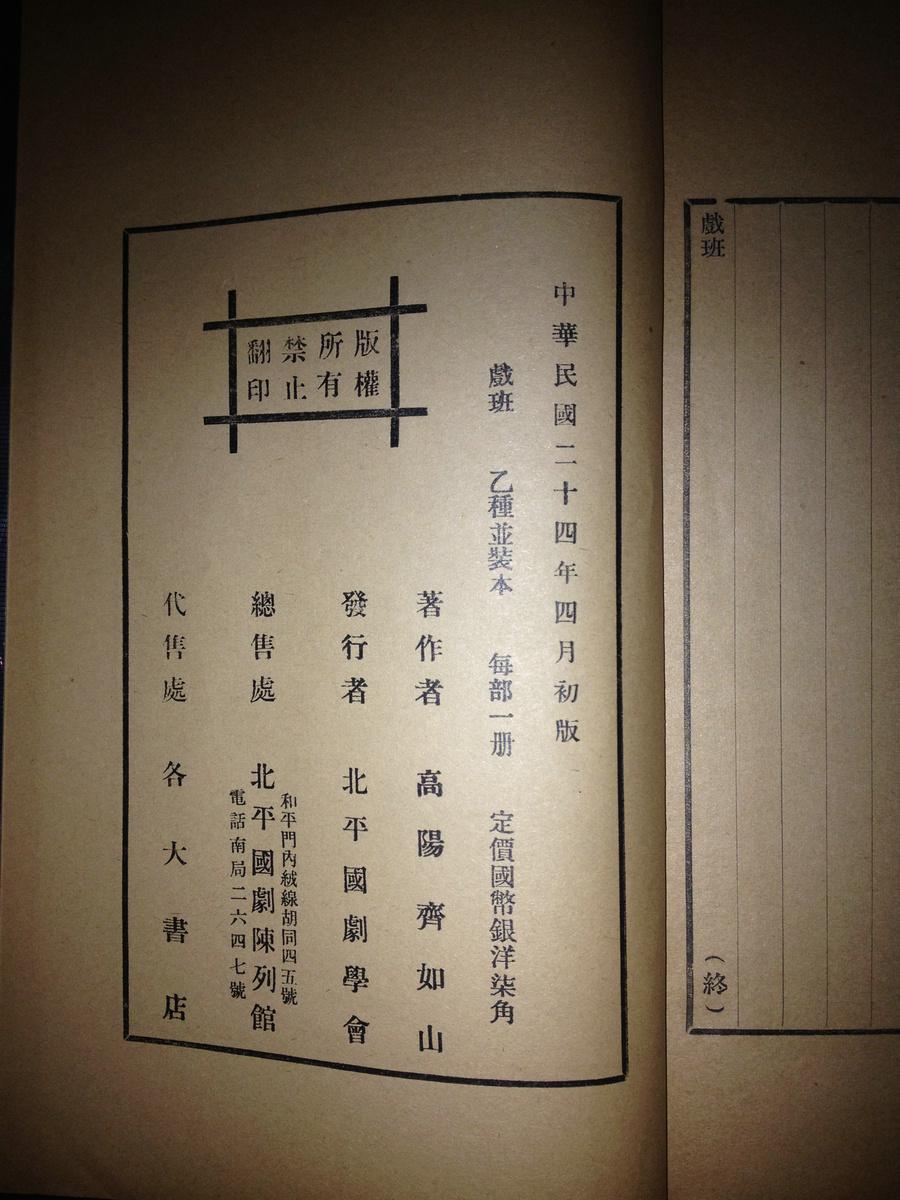 戲班
（終）
中華民國二十四年四月初版
戲班 乙種並裝本 每部一册 定價國幣銀洋柒角
版權
所有
禁止
翻印
著作者 高陽齊如山
發行者 北平國劇學會
總售處 北平國劇陳列館
和平門內絨線胡同四五號
電話南局二六四七號
代售處 各大書店